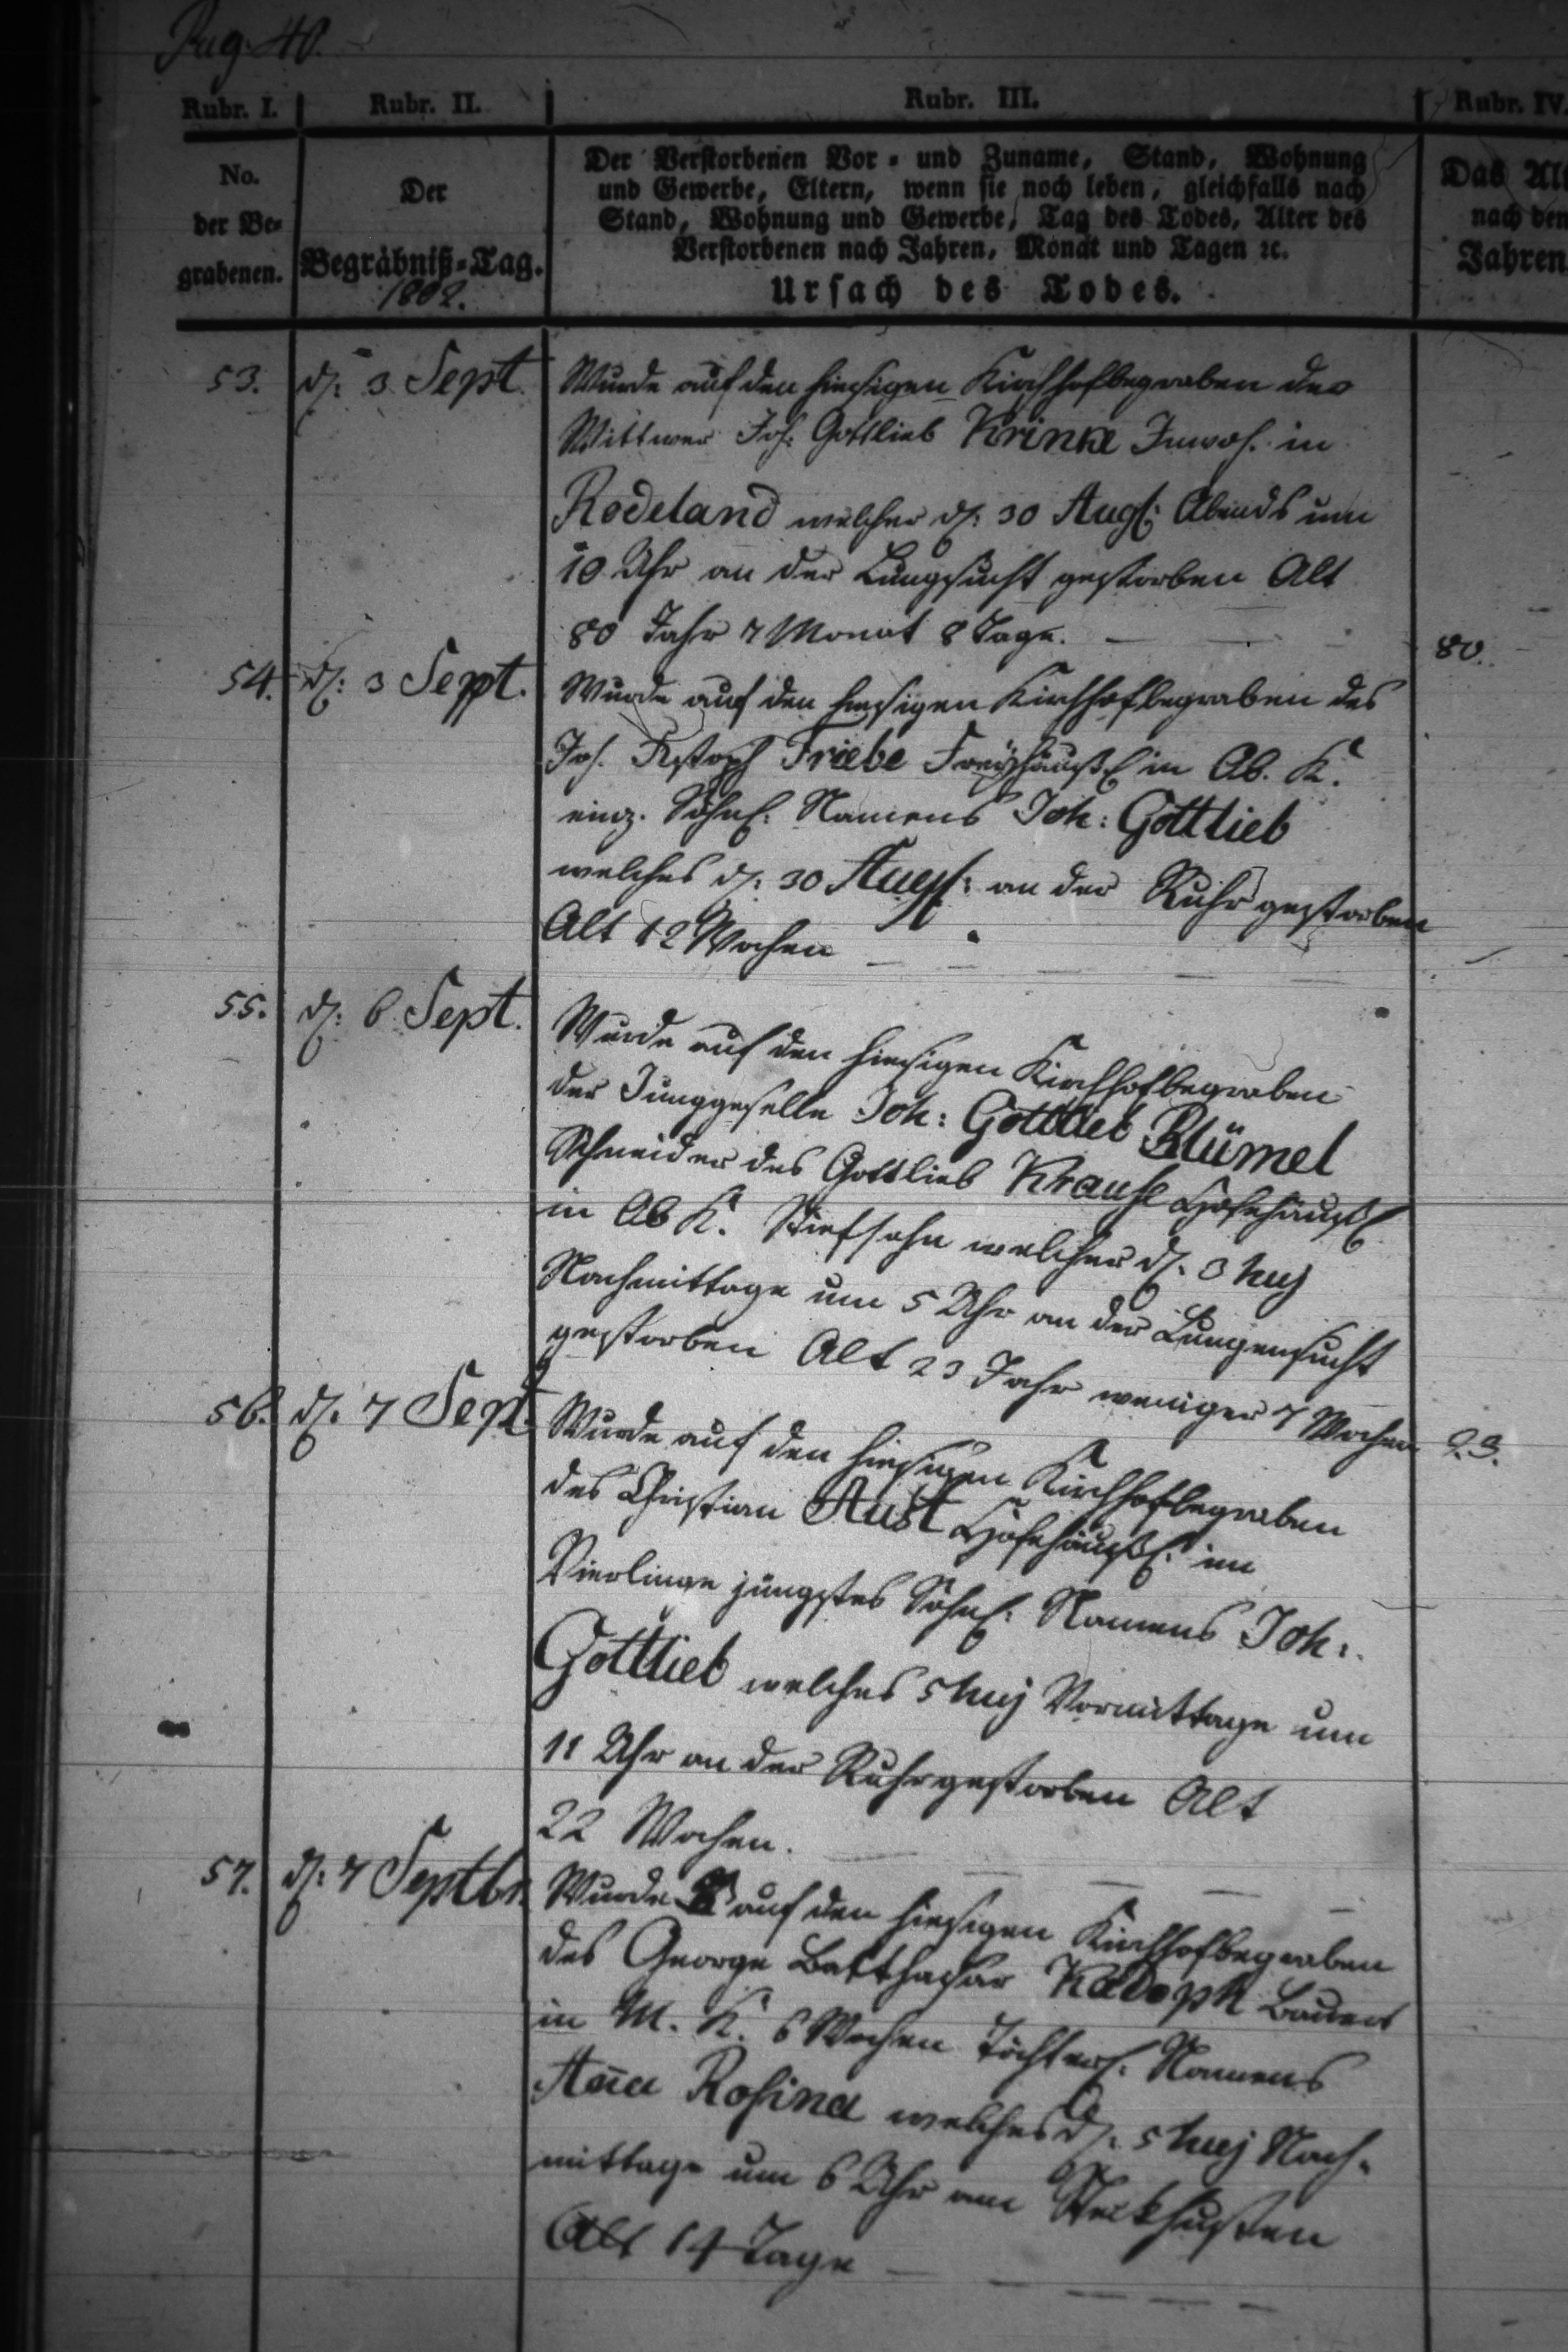 Pag. 40.
Rubr. I. Rubr. II. Rubr. III. Rubr. IV.
No. der Be= grabenen.
Der Begräbniß=Tag. 1802.
Der Verstorbenen Vor = und Zuname, Stand, Wohnung
und Gewerbe, Eltern, wenn sie noch leben, gleichfalls nach
Stand, Wohnung und Gewerbe, Tag des Todes, Alter des
Verstorbenen nach Jahren, Monat und Tagen ꝛc.
Ursach des Todes.
Das Alt
nach den
Jahren
53. d. 3 Sept. Wurde auf den hiesigen Kirchhof begraben der
Wittwer Joh. Gottlieb Krinke Inwoh. in
Rodeland welcher d: 30 Aug: Abends um
10 Uhr an der Lungsucht gestorben Alt
80 Jahr 7 Monat 8 Tage. 80.
54. d: 3 Sept. Wurde auf den hiesigen Kirchhof begraben des
Joh. Friebe Freyhäußl in Ob. K.
einz. Söhnl. Namens Joh: Gottlieb
welches d: 30 Aug: an der Ruhr gestorben
Alt 12 Wochen
55. d: 6 Sept. Wurde auf den hiesigen Kirchhof begraben
der Junggeselle Joh: Gottlieb Blümel
Schneider des Gottlieb Krause Hofehäußl
in Ob K. Stiefsohn welcher d. 3 huj
Nachmittage um 5 Uhr an der Lungensucht
gestorben Alt 23 Jahr weniger 7 Wochen 23.
56. d. 7 Sept. Wurde auf den hiesigen Kirchhof begraben
des Christian Aust Hofehäußl. im
Vierlinge jüngstes Söhnl: Namens Joh:
Gottlieb welches 5 huj Vormittage um
11 Uhr an der Ruhr gestorben Alt
22 Wochen.
57. d: 7 Septbr. Wurde auf den hiesigen Kirchhof begraben
des George Balthasar Kadoph Bauers
in M. K. 6 Wochen Töchterl. Namens
Aña Rosina welches d: 5 huj Nach=
mittage um 6 Uhr am Steckhusten
Alt 14 Tage